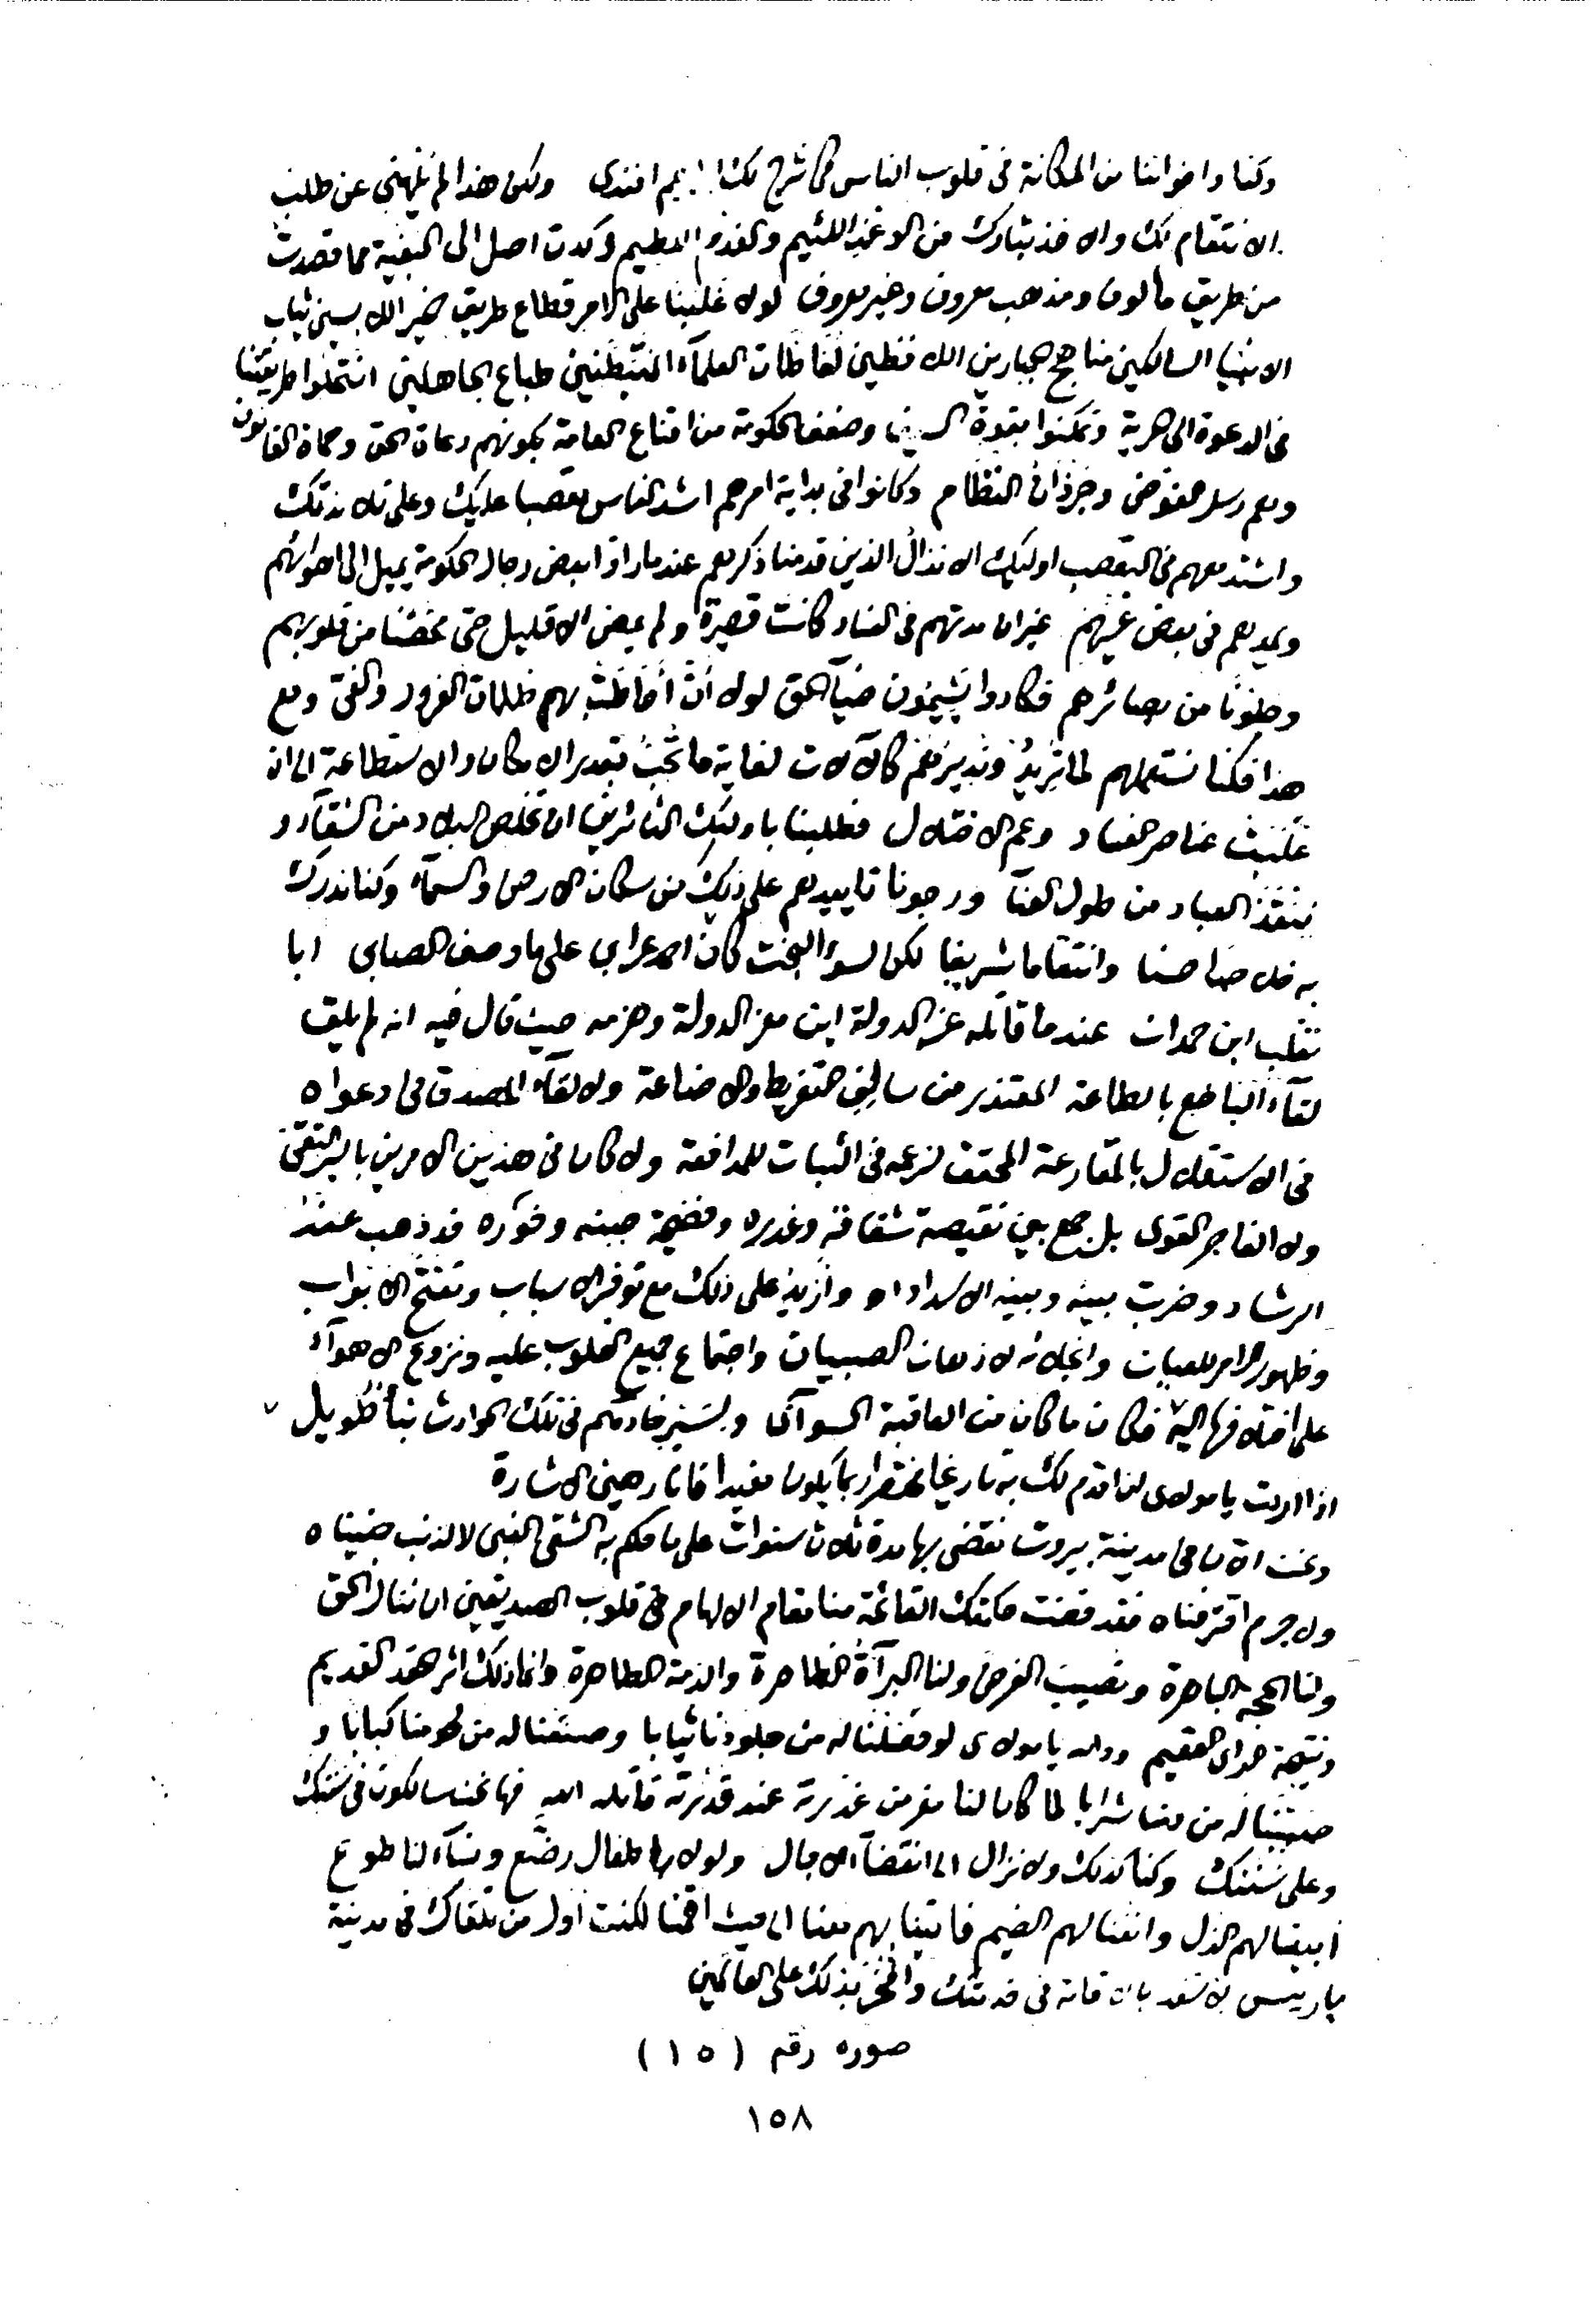 وكنا واخواننا من المكانة فى قلوب الناس كما شرح لك ابراهيم افندى ولكن هذا لم يلهنى عن طلب
الانتقام لك والاخذ بثارك من الوغد اللئيم والفدم العظيم وكدت اصل الى البغية مما قصدت
من طريق مألوف ومذهب معروف وغير معروف لولا غلبنا على الامر قطاع طريق الخير اللابسين ثياب
الاتقيا السالكين مناهج الجبارين اللافظين لفاظات العلمآء المتبطنين طباع الجاهلين انتحلوا طريقتنا
فى الدعوة الى الحرية وتمكنوا بقوة وضعف الحكومة من اقناع العامة بكونهم دعاة الحق وحماة القانون
وهم رسل الفوضى وجرذان النظام وكانوا فى بداية امرهم اشد الناس تعصبا عليك وعلى تلامذتك
واشتد معهم فى التعصب اوليك الانذال الذين قدمنا ذكرهم عندما راوا بعض رجال الحكومة يميل الى اهوائهم
ويمدهم فى بعض غيهم غير ان مدتهم فى الفساد كانت قصيرة ولم يمض الا قليل حتى محضنا من قلوبهم
وجلونا من بصائرهم فكادوا يشيمون ضيآ الحق لولا أن أحاطت بهم ظلمات الغرور والغى ومع
هذا فكنا نستعملهم لما نريد ونديرهم كالآلات لغاية ما نحب بقدر الامكان والاستطاعة الى ان
غلبت عناصر الفساد وعم الاختلال فطلبنا باوليك الثائرين ان نخلص البلاد من الشقآء و
ننقذ العباد من طول العنآ ورجونا تاييدهم على ذلك من سكان الارض والسمآء وكنا ندرك
به خلاصا حسنا وانتقاما شريفا لكن لسوء البخت كان احمد عرابى على ما وصف الصابى ابا
تغلب ابن حمدان عندما قاتله عز الدولة ابن معز الدولة وهزمه حيث قال فيه انه لم يلق
لقآء الباخع بالطاعة المعتذر من سالف التفريط والاضاعة ولا لقآء المصدق فى دعواه
فى الاستقلال بالمقارعة المحقق لزعمه فى الثبات للمدافعة ولا كان فى هذين الامرين بالبر التقى
ولا الفاجر القوى بل جمع بين نقيصة شقاقه وغدره وفضيحة جبنه وخوره قد ذهب عنه
الرشاد وضربت بينه وبينه الاسداد اه وازيد على ذلك مع توفر الاسباب وتفتح الابواب
وظهور الامر للعيان وانجلائه لاذهان الصبيان واجتماع جميع القلوب عليه ونزوع الاهوآء
على اختلافها اليه فكان ما كان من العاقبة السوآى وليسير خادمكم فى تلك الحوادث نبأ طويل
اذا اردت يا مولاى ان اقدم لك به تاريخا مختصرا ربما يكون مفيدا فانا رهين الاشارة
ونحن الآن فى مدينة بيروت نقضى بها مدة ثلاث سنوات على ما حكم به الشقى الغبى لا لذنب جنيناه
ولا جرم اقترفناه فقد قضت حكمتك القائمة منا مقام الالهام فى قلوب الصديقين ان ننال الحق
ولنا الحجة الباهرة ونصيب الغرض ولنا البرآءة الظاهرة والذمة الطاهرة وانما ذلك اثر الحقد القديم
ونتيجة الراى العقيم ووالله يا مولاى لو فصلنا له من جلودنا ثيابا وصنعنا له من لحومنا كبابا و
من دمنا شرابا لما كان لنا مفر من غدرته عند قدرته قاتله الله فها نحن سالكون فى سننك
وعلى سننك وكنا كذلك ولا نزال الى انقضآء الاجال ولولا اطفال رضع ونسآء لنا طوع
أبينا لهم الذل وانفنا لهم الضيم فاتينا بهم معنا الى حيث اقمنا لكنت أول من تلقاك فى مدينة
باريس لاسعد بالاقامة فى خدمتك وافخر بذلك على العالمين
صوره رقم (١٥)
١٥٨